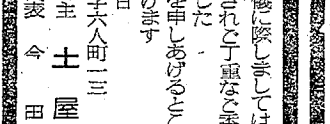 儀に際しましては
されご丁重なご香
した
を申しあげるとこ
げます
日
子六人町一三
主 土屋
表 今田